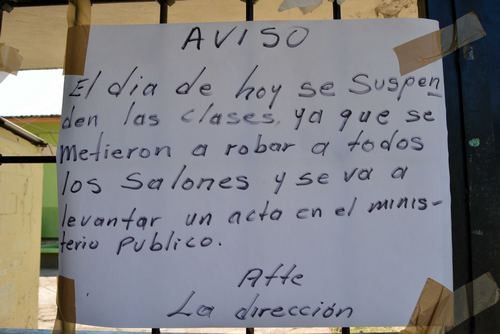 AVISO
El dia de hoy se Suspen
den las clases, ya que se
metieron a robar a todos
los salones y se va a
levantar un acta en el minis-
terio publico.
Atte
La dirección